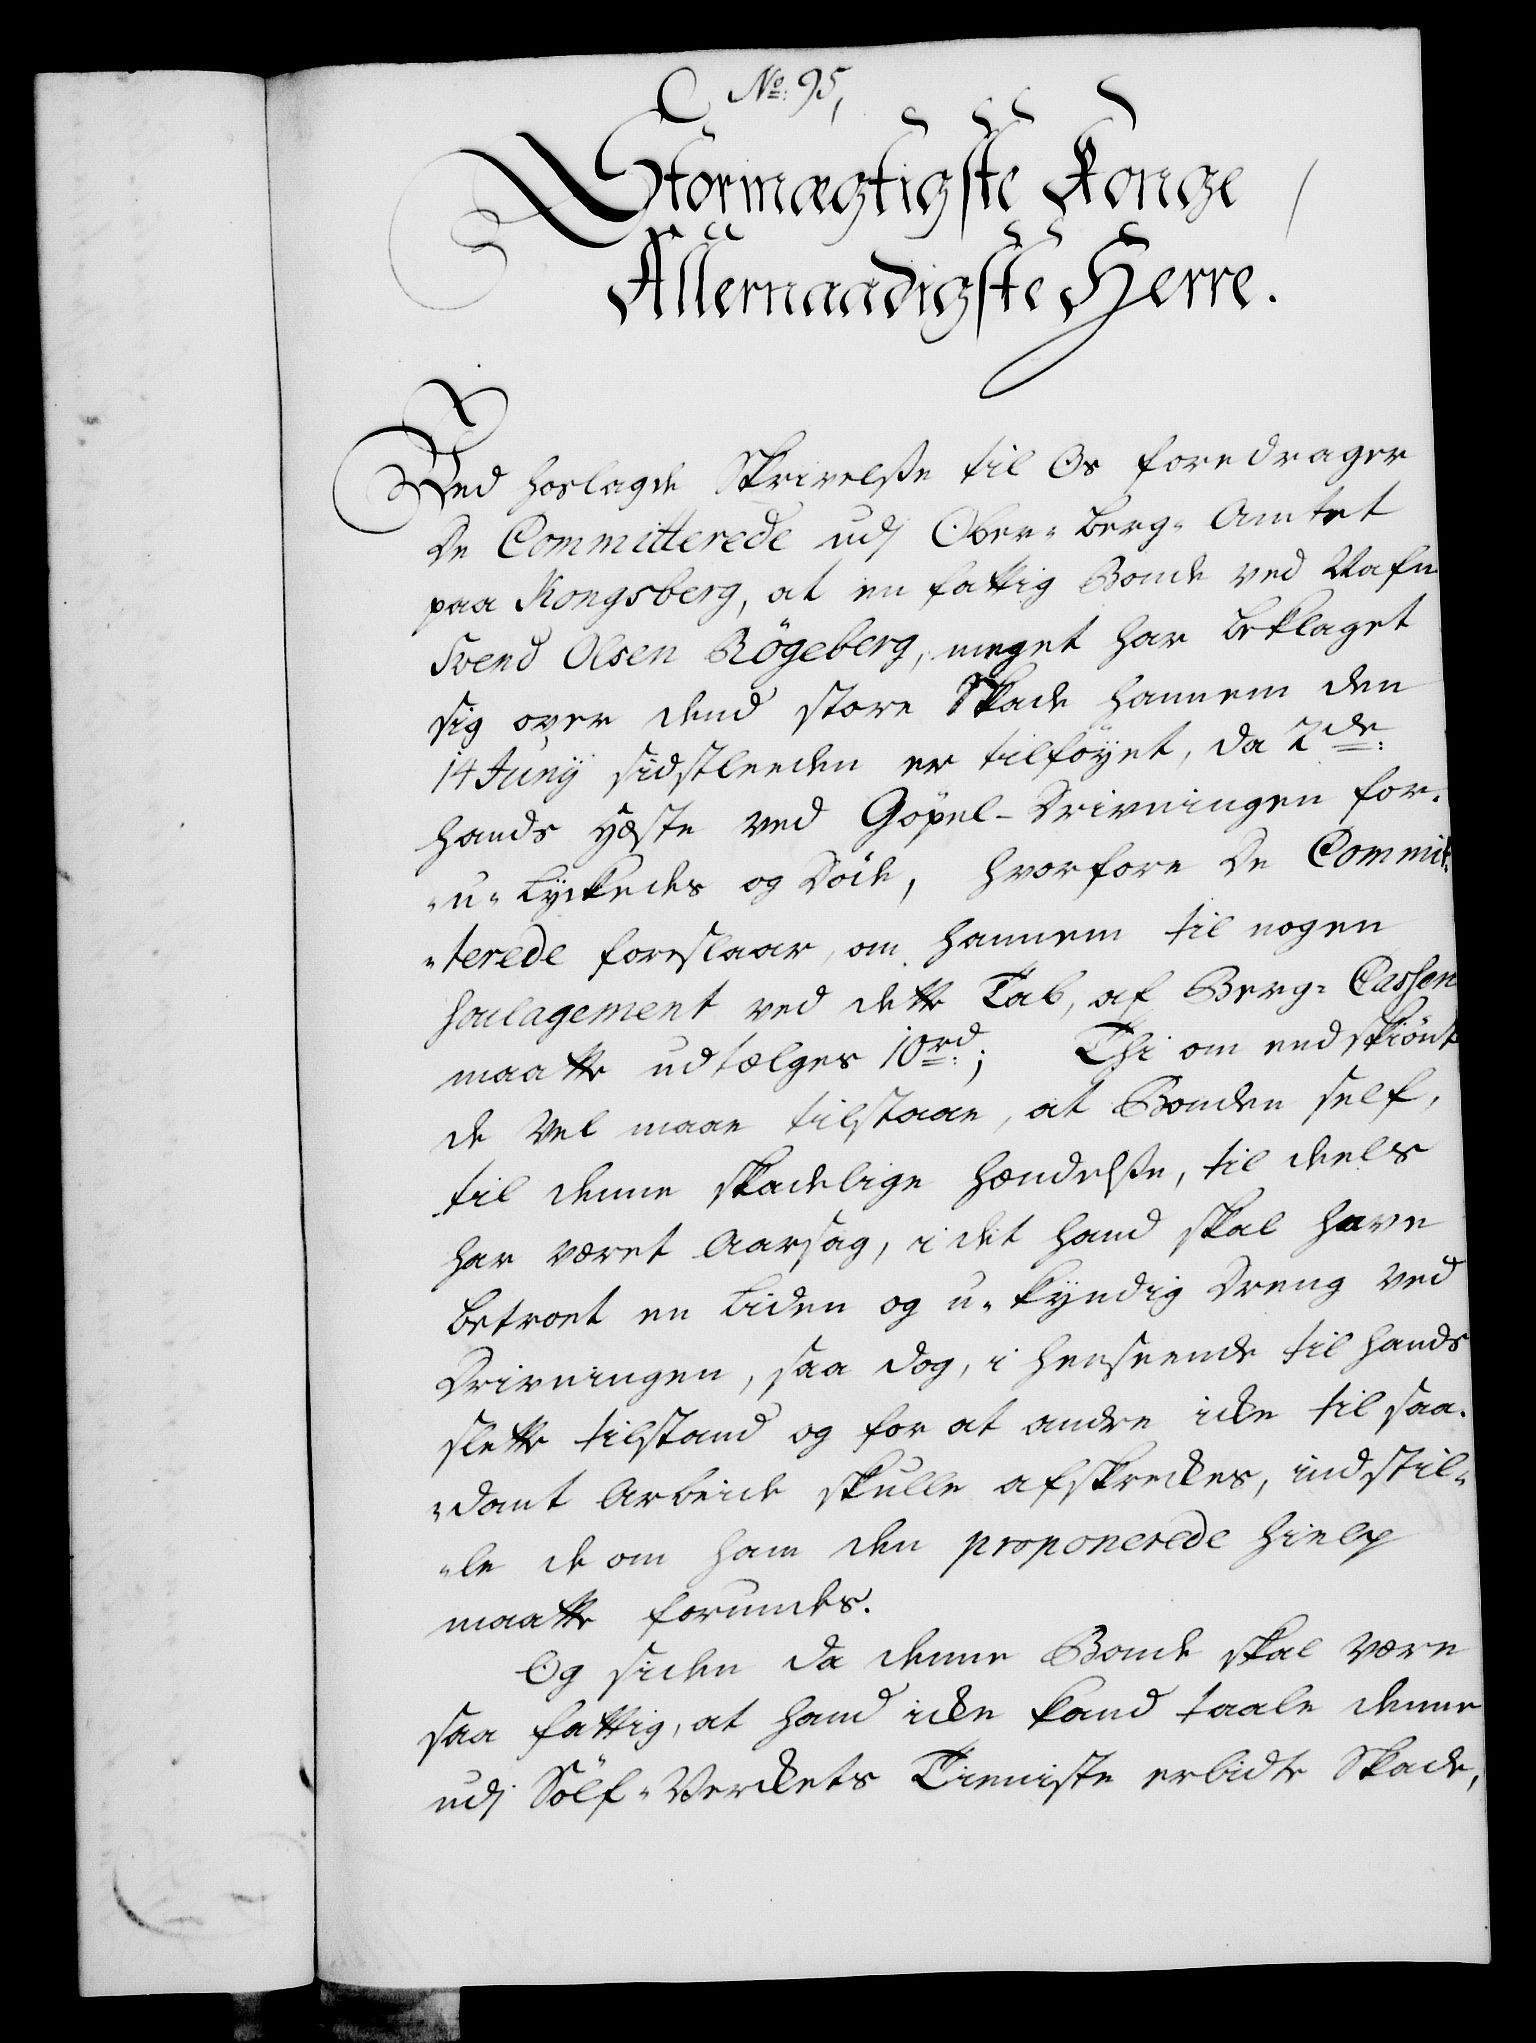 No: 95,
Stormægtigste Konge
Allernaadigste Herre.
Ved hoslagde Skrivelsse til Os foredrager
De Committerede udj Ober-Berg-Amtet
paa Kongsberg, at en fattig Bonde ved Nafn
Svend Olsen Rögeberg, meget har beklaget
sig over dend store Skade hannem den
14 Junij sidstleeden er tilföyet, da 2de:
hands Hæste ved Göpel-Drivningen for-
-u-Lyckedes og döde, hvorfore De Commit-
-terede foreslaar, om hannem til nogen
Soulagement ved dette Tab, af Berg-Cassen
maatte udtælges 10rd:; Thi om endskiönt
de Vel maae tilstaae, at Bonden self,
til denne skadelige Hændelsse, til deels
har været Aarsag, i det hand skal have
betroet en Liden og u-kyndig Dreng ved
Drivningen, saa dog, i henseende til hands
slette tilstand og for at andre icke til saa-
-dant Arbeide skulle afskreckes, indstil-
-le de om ham den proponerede Hielp
maatte forundes.
Og siden da denne Bonde skal være
saa fattig, at hand icke kand taale denne
udj Sölf-Verckets Tieniste erlidte Skade,